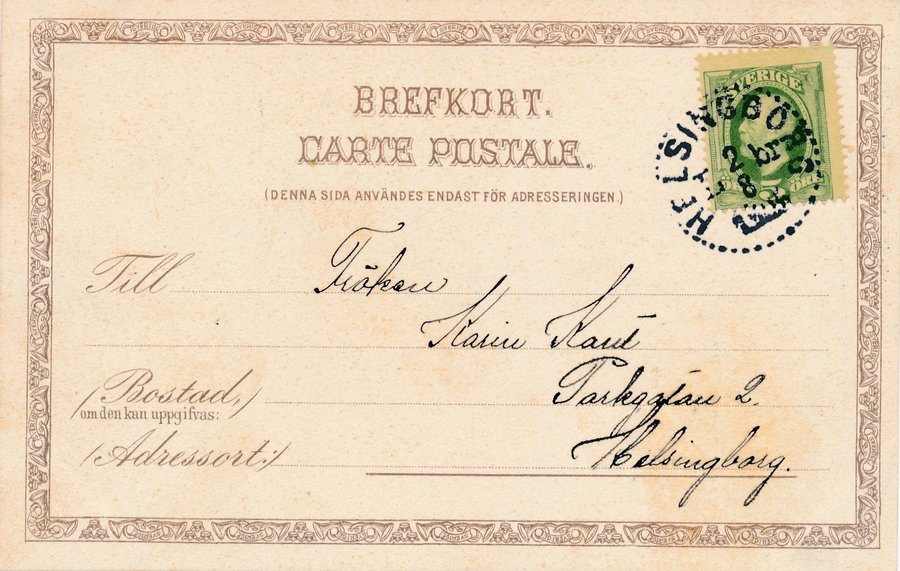 BREFKORT.
CARTE POSTALE.
(DENNA SIDA ANVÄNDES ENDAST FÖR ADRESSERINGEN.)
SVERIGE
5 ÖRE
HELSINGBORG
Till Fröken
Karin
(Bostad,)
om den kan uppgifvas:
Parkgatan 2.
(Adressort:) Helsingborg.